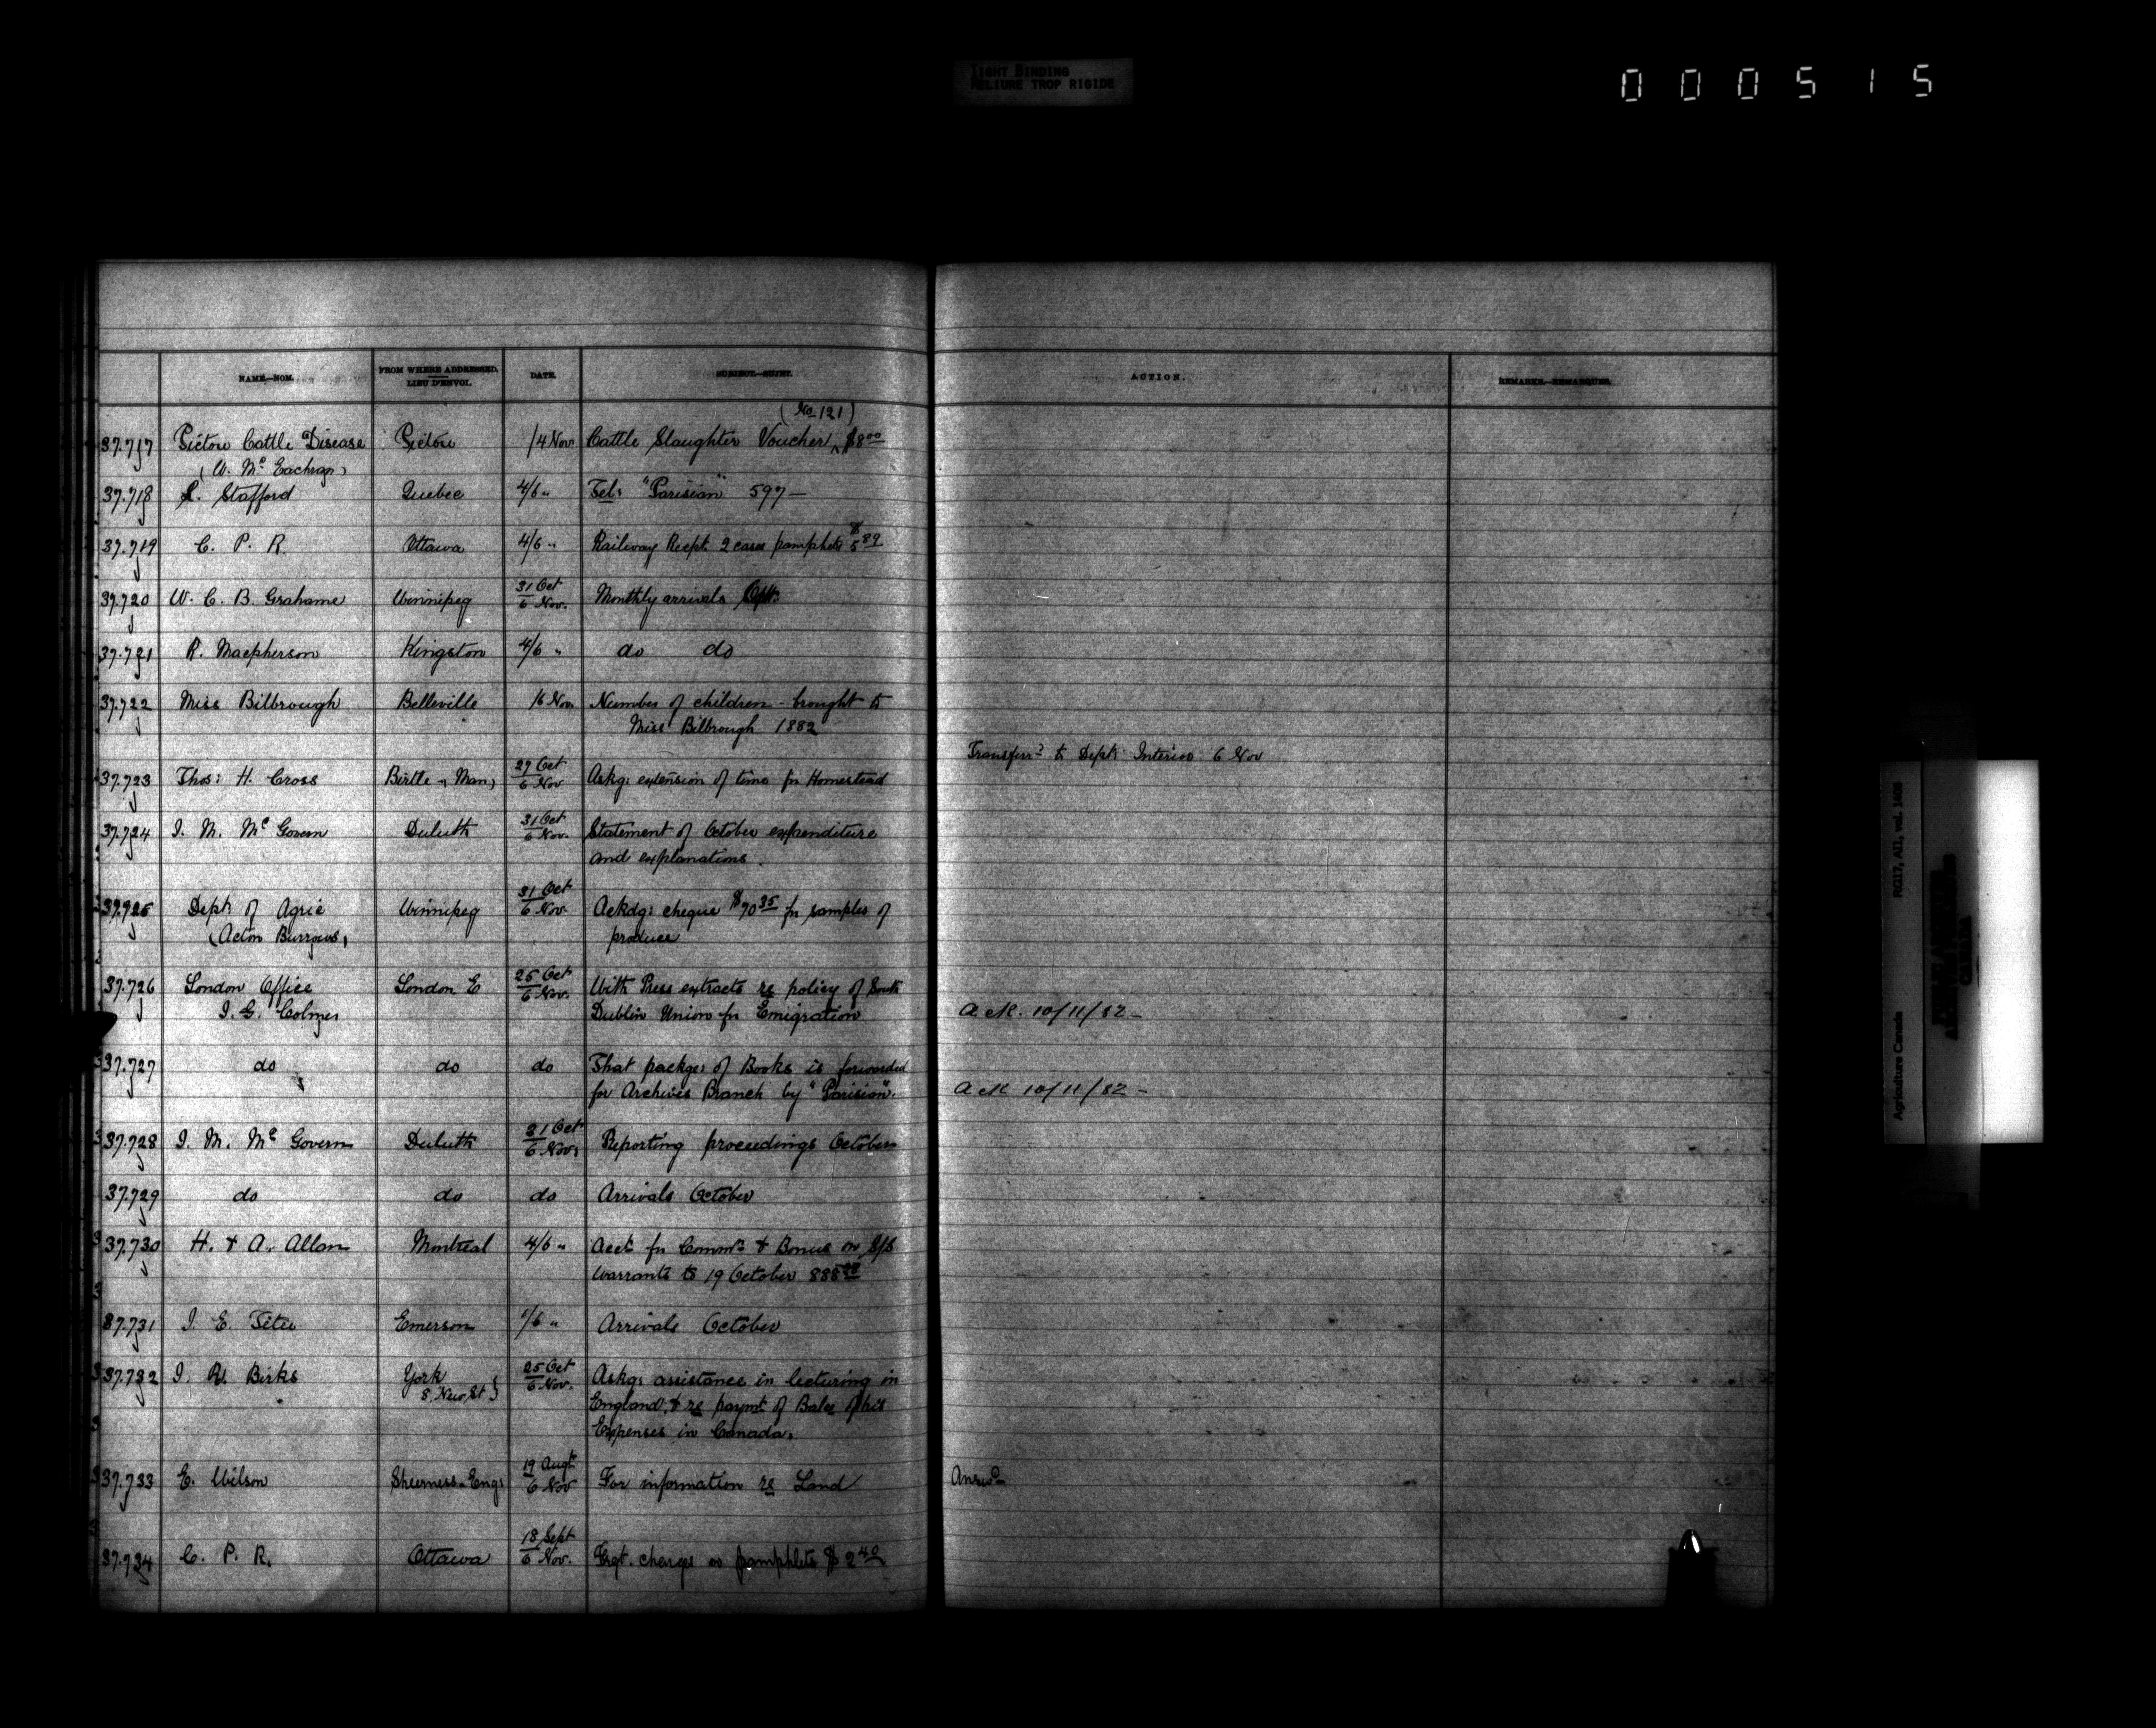 TIGHT BINDING
RELIURE TROP RIGIDE
000515
NAME.—NOM.
FROM WHERE ADDRESSED.
LIEU D'ENVOI.
DATE.
SUBJECT.—SUJET.
ACTION.
REMARKS.—REMARQUES.
(No 121)
37.717 Pictou Cattle Disease Pictou /4 Nov Cattle Slaughter Voucher $8 00
(W. Mc Eachran)
37.718 L. Stafford Quebec 4/6 " Tel: "Parisian" 597—
37.719 C. P. R. Ottawa 4/6 " Railway Recpt. 2 cases pamphets $5 89
37.720 W. C. B. Grahame Winnipeg 31 Oct
6 Nov. Monthly arrivals
37.721 R. Macpherson Kingston 4/6 " do do
37.722 Miss Bilbrough Belleville Nov. Number of children brought to
Miss Bilbrough 1882
Transferrd to Dept: Interior 6 Nov
37.723 Thos: H. Cross Birtle, Man, 27 Oct
6 Nov Askg: extension of time for Homestead
37.724 J. M. Mc Govern Duluth 31 Oct
6 Nov. Statement of October expenditure
and explanations.
37.725 Dept: of Agric Winnipeg 31 Oct
6 Nov. Ackdg: cheque $70 35 for samples of
(Acton Burrows) produce
37.726 London Office London E 25 Oct
6 Nov. With Press extracts re policy of South
J. G. Colmer Dublin Union for Emigration Ack. 10/11/82—
37.727 do do do That packge: of Books is forwarded
for Archives Branch by "Parisian". Ack 10/11/82—
37.728 J. M. Mc Govern Duluth 31 Oct
6 Nov. Reporting proceedings October
37.729 do do do Arrivals October
37.730 H. & A. Allan Montreal 4/6 " Acct for Commn & Bonus on S/S
Warrants to 19 October
37.731 J. E. Têtu Emerson /6 " Arrivals October
37.732 J. R. Birks York 25 Oct
6 Nov. Askg: assistance in lecturing in
8, New St } England, & re paymt of Balce of his
Expenses in Canada.
37.733 E. Wilson Sheerness. Eng: 19 Augt
6 Nov For information re Land Answd
37.734 C. P. R. Ottawa 18 Sept
6 Nov. Frgt. charges on pamphlets $2 40
RG17, AII, vol. 1408
Agriculture Canada